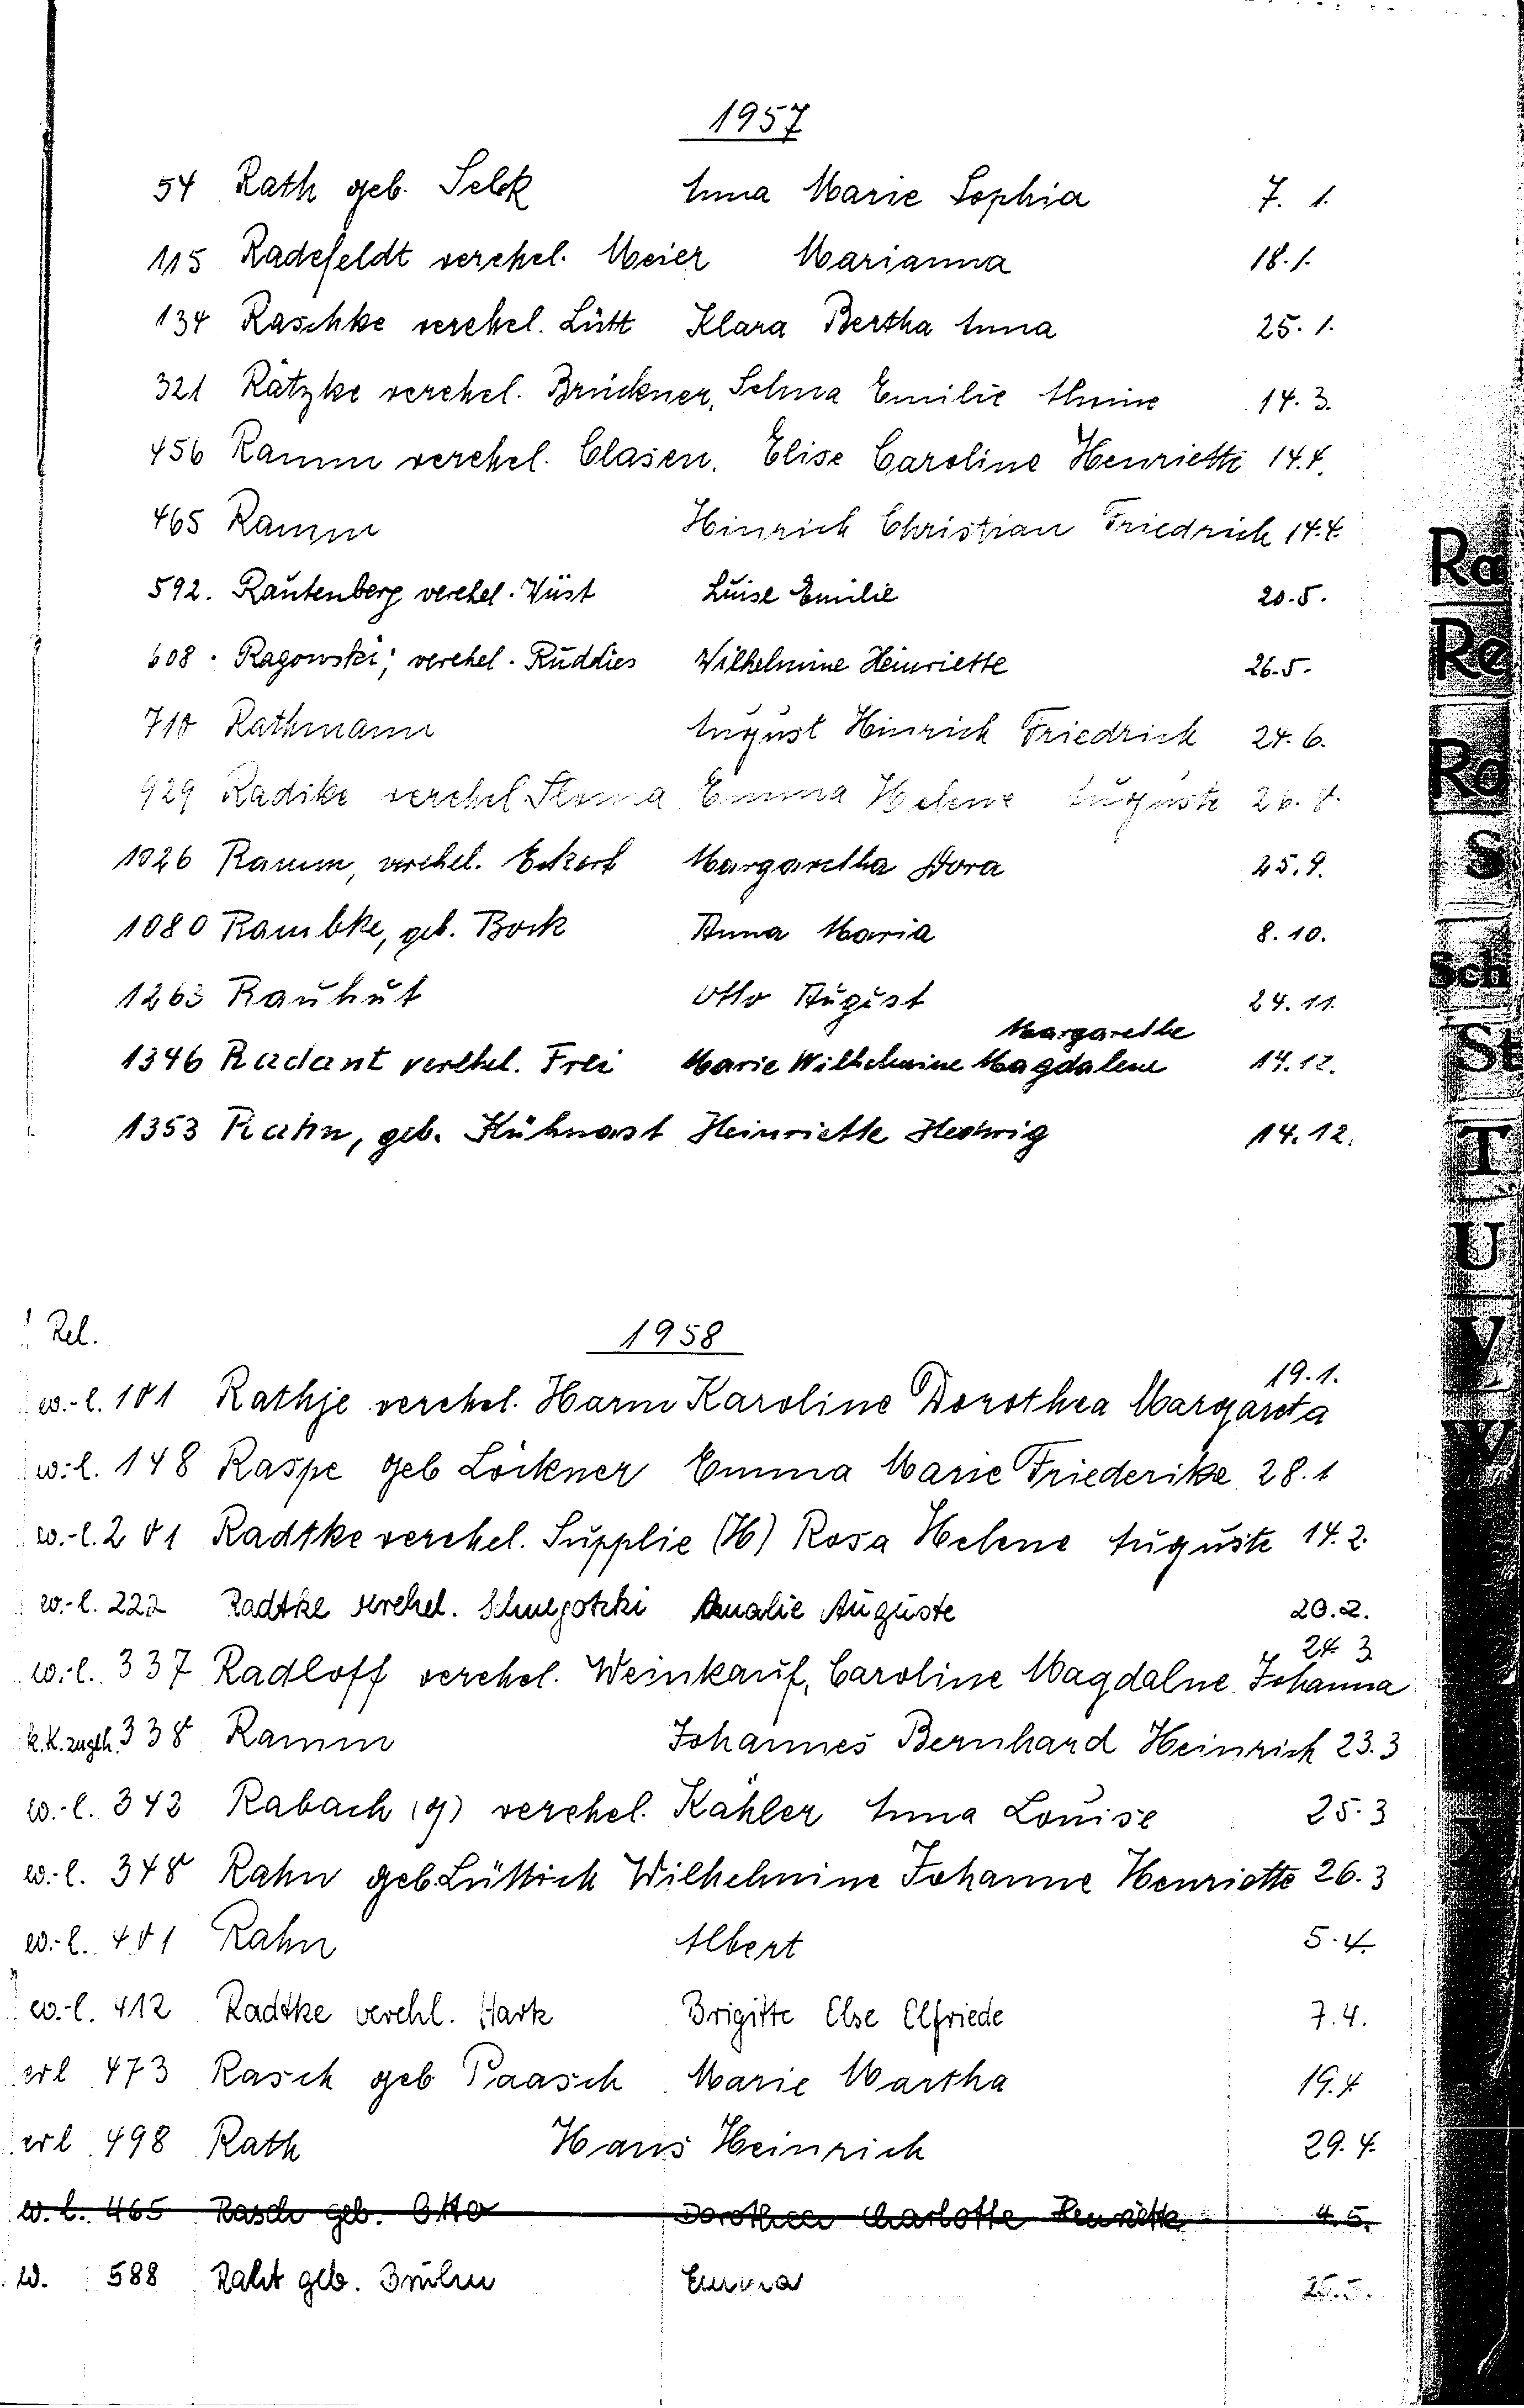 1957
54 Rath geb. Selck Anna Marie Sophia 7. 1.
115 Radefeldt verehel. Meier Marianna 18. 1.
134 Raschke verehel. Lütt Klara Bertha Anna 25. 1.
321 Rätzke verehel. Brückner, Selma Emilie 14. 3.
456 Ramm verehel. Clasen, Elise Caroline Henriette 14. 4.
465 Ramm Hinrich Christian Friedrich 14. 4.
592. Rautenberg verehel. Wüst Luise Emilie 20. 5.
608. Ragowski; verehel. Ruddies Wilhelmine Heinriette 26. 5.
710 Rathmann August Hinrich Friedrich 24. 6.
929 Radike verehel Emma Helene Auguste 26. 8.
1026 Ramm, verehel. Eckert Margaretha Dora 25. 9.
1080 Rambke, geb. Bock Anna Maria 8. 10.
1263 Rauhut Otto August 24. 11.
Margarethe
1346 Radant verehel. Frei Marie Wilhelmine Magdalene 14. 12.
1353 Rahn, geb. Kühnast Heinriette Hedwig 14. 12.
Rel. 1958
19. 1.
ev.-l. 101 Rathje verehel. Harm Karoline Dorothea Margareta
ev.-l. 148 Raspe geb Löckner Emma Marie Friederike 28. 1
ev.-l. 201 Radtke verehel. Supplie (H) Rosa Helene Auguste 14. 2.
ev.-l. 222 Radtke verehel. Amalie Auguste 20. 2.
24 3
ev.-l. 337 Radloff verehel. Weinkauf, Caroline Magdalne Johanna
k. K. zugeh. 338 Ramm Johannes Bernhard Heinrich 23. 3
ev.-l. 343 Rabach (g) verehel. Kähler Anna Louise 25. 3
ev.-l. 348 Rahn geb. Lüttich Wilhelmine Johanne Henriette 26. 3
ev.-l. 401 Rahn Albert 5. 4.
ev.-l. 412 Radtke verehl. Hark Brigitte Else Elfriede 7. 4.
evl 473 Rasch geb Paasch Marie Martha 19. 4
evl 498 Rath Hans Heinrich 29. 4.
ev. l. 465 Rasch geb. Otto Dorothea Charlotte Henriette 4. 5.
ev. 588 Raht geb. Emma 25. 5.
Ra
Re
Ro
S
Sch
St
T
U
V
W